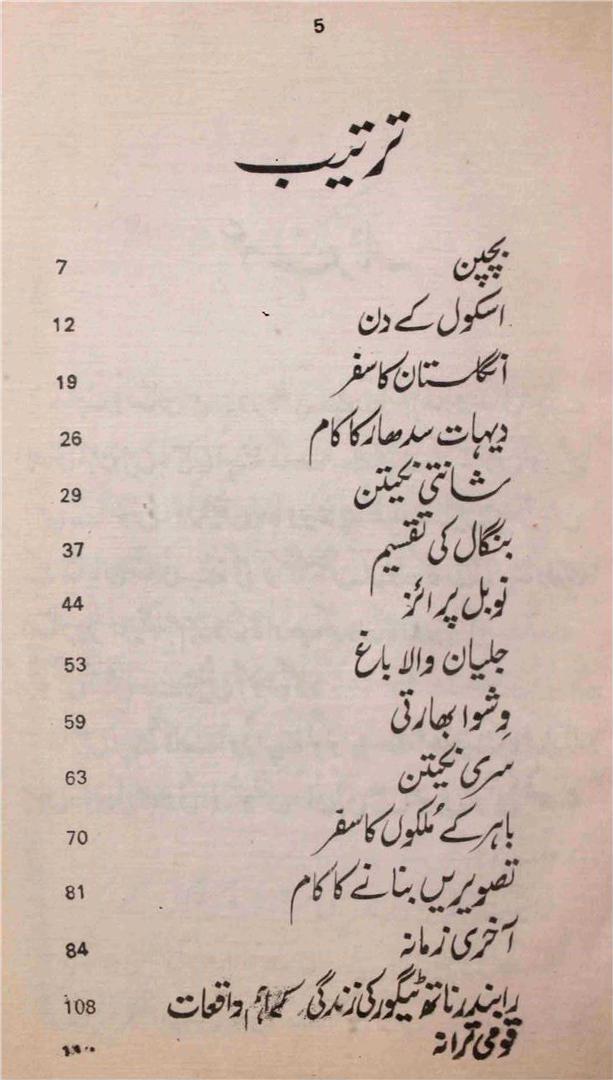 5
ترتیب
بچپن 7
اسکول کے دن 12
انگلستان کا سفر 19
دیہات سدھار کا کام 26
شانتی نکیتن 29
بنگال کی تقسیم 37
نوبل پرائز 44
جلیان والا باغ 53
وِشوا بھارتی 59
سری نکیتن 63
باہر کے مُلکوں کا سفر 70
تصویریں بنانے کا کام 81
آخری زمانہ 84
رابندر ناتھ ٹیگور کی زندگی کے اہم واقعات 108
قومی ترانہ